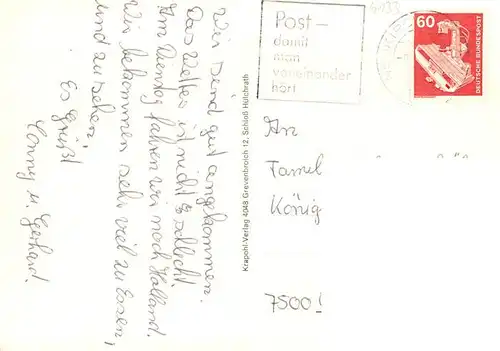 Wir sind gut angekommen.
Das Wetter ist nicht so schlecht.
Am Dienstag fahren wir nach Holland.
Wir bekommen sehr viel zu Essen,
und zu sehen.
Es grüßt
Conny u. Gerhard.
Krapohl-Verlag 4048 Grevenbroich 12, Schloß Hülchrath
Post –
damit
man
voneinander
hört
60
DEUTSCHE BUNDESPOST
An
König
7500!